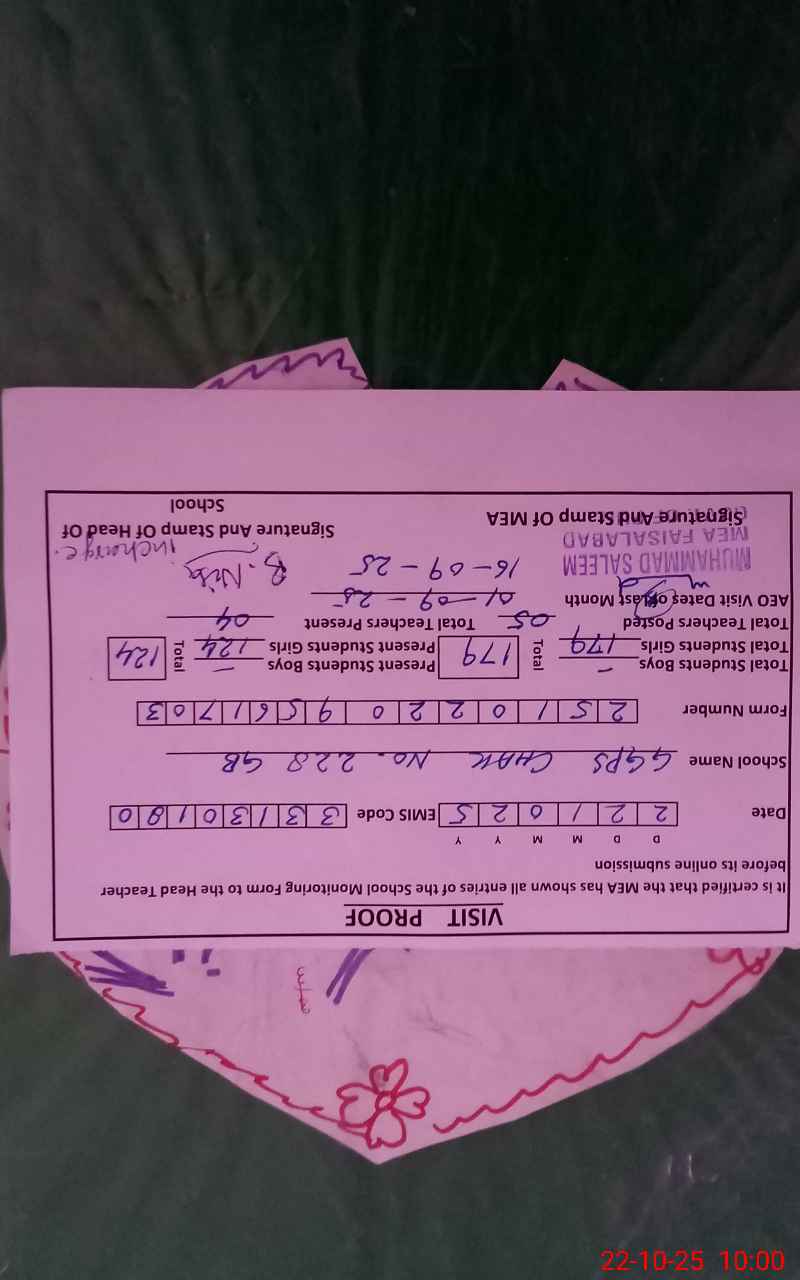 VISIT PROOF
It is certified that the MEA has shown all entries of the School Monitoring Form to the Head Teacher
before its online submission
D D M M Y Y
Date 2 2 1 0 2 5 EMIS Code 3 3 1 3 0 1 8 0
School Name GGPS CHAK No. 228 GB
Form Number 2 5 1 0 2 2 0 9 5 6 1 7 0 3
Total Students Boys – Total 179 Present Students Boys – Total 124
Total Students Girls 179 Present Students Girls 124
Total Teachers Posted 05 Total Teachers Present 04
AEO Visit Dates of Last Month 01-09-25
16-09-25
MUHAMMAD SALEEM
MEA FAISALABAD
Incharge
Signature And Stamp Of MEA
Signature And Stamp Of Head Of
School
22-10-25 10:00